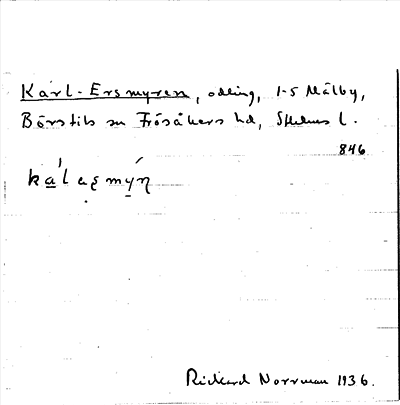 Karl-Ersmyren, odling, 1-5 Målby,
Börstils sn Frösåkers hd, Sthlms l.
846
Rickard Norrman 1936.